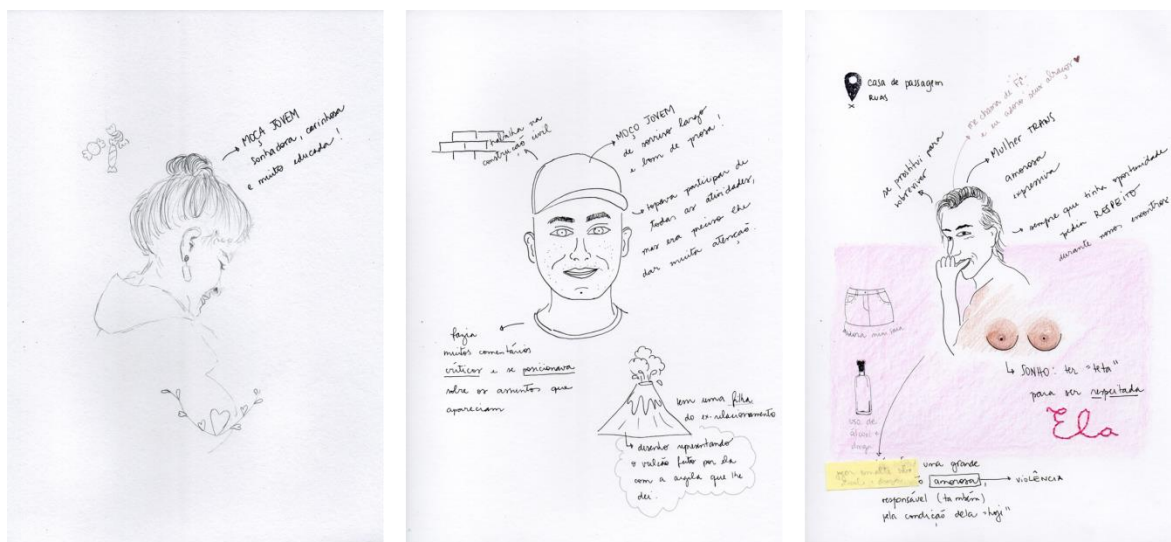 MOÇA JOVEM
sonhadora, carinhosa
e muito educada!
trabalha na
construção civil
MOÇO JOVEM
de sorriso largo
e bom de prosa!
topava participar de
todas as atividades,
mas era preciso lhe
dar muita atenção.
fazia
muitos comentários
críticos e se posicionava
sobre os assuntos que
apareciam
tem uma filha
do ex-relacionamento
desenho representando
o vulcão feito por ela
com a argila que lhe
dei.
casa de passagem
RUAS
me chama de
e eu adoro seus abraços
se prostitui para
sobreviver
Mulher TRANS
amorosa
expressiva
sempre que tinha oportunidade
pedia RESPEITO
durante nossos encontros
adora mini saia
SONHO: ter "teta"
para ser respeitada
Ela
uso de
álcool e
drogas
uma grande
amorosa, VIOLÊNCIA
responsável (também)
pela condição dela "hoje"